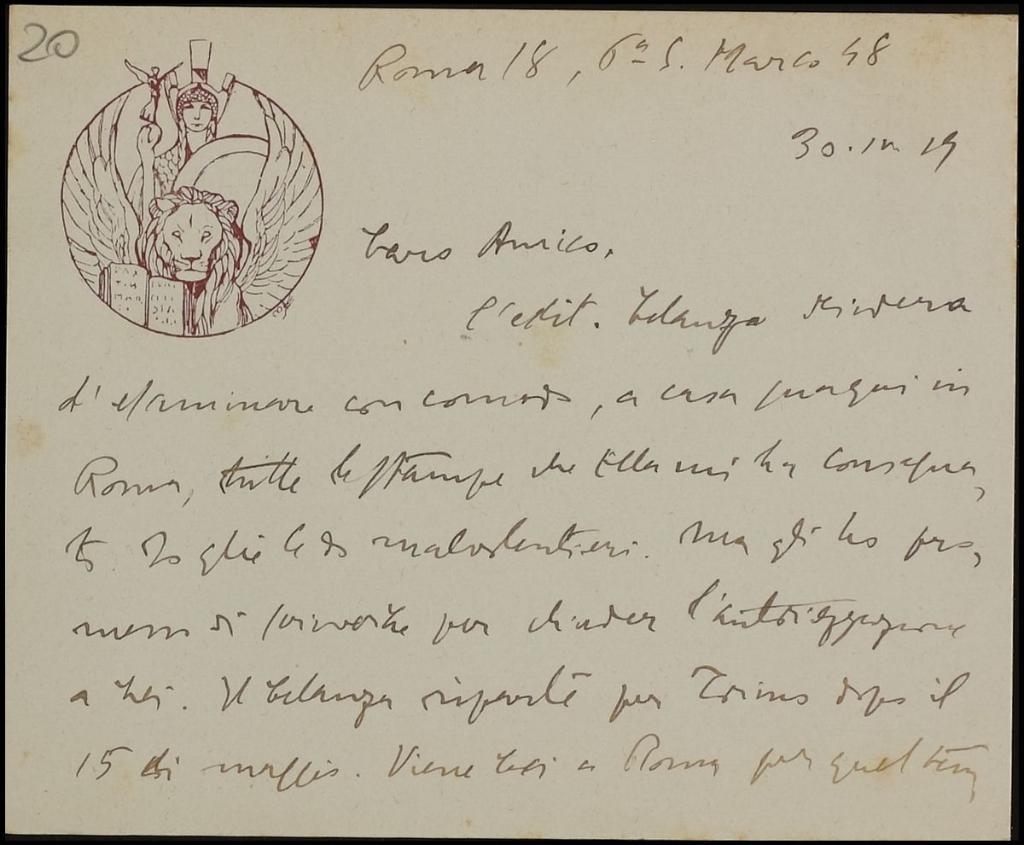 20
Roma 18, 6ª S. Marco 48
30.IV 19
Caro Amico,
l'edit. Celanza
d'esaminare con comodo, a casa qui in
Roma, tutte le stampe che Ella mi ha consegna,
to. Io glie le do malvolentieri. Ma gli ho pro,
messo di scriverle per chieder l'autorizzazione
a Lei. Il Celanza riparte per Torino dopo il
15 di maggio. Viene Lei a Roma per quel tem,